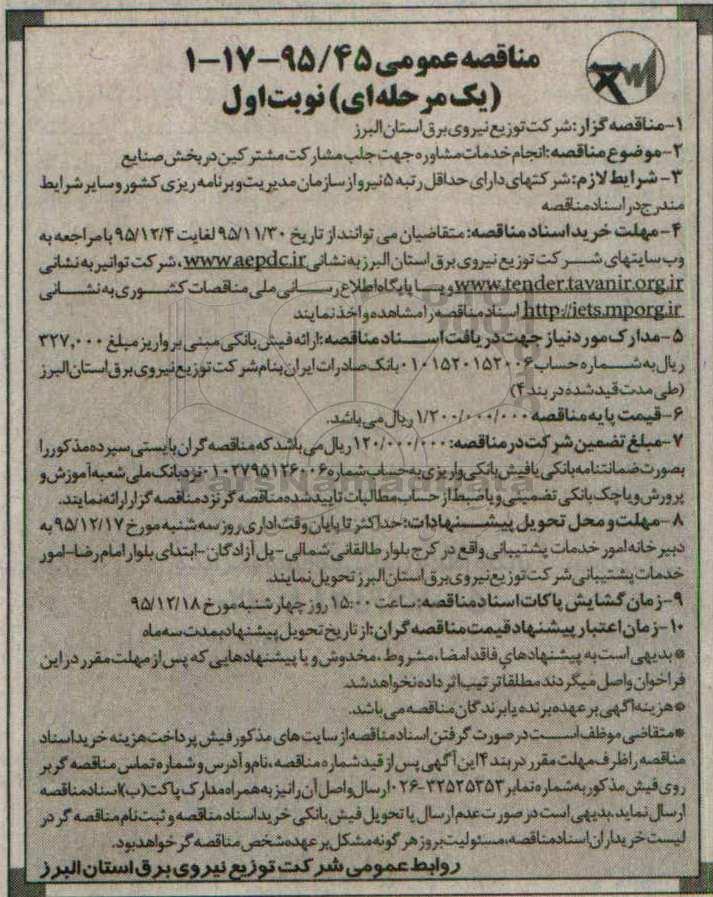 مناقصه عمومی ۹۵/۴۵-۱۷-۱
(یک مرحله‌ای) نوبت اول
۱-مناقصه گزار: شرکت توزیع نیروی برق استان البرز
۲-موضوع مناقصه: انجام خدمات مشاوره جهت جلب مشارکت مشترکین در بخش صنایع
۳-شرایط لازم: شرکتهای دارای حداقل رتبه ۵ نیرو از سازمان مدیریت و برنامه ریزی کشور و سایر شرایط
مندرج در اسناد مناقصه
۴-مهلت خرید اسناد مناقصه: متقاضیان می توانند از تاریخ ۹۵/۱۱/۳۰ لغایت ۹۵/۱۲/۴ با مراجعه به
وب سایتهای شرکت توزیع نیروی برق استان البرز به نشانی www.aepdc.ir، شرکت توانیر به نشانی
www.tender.tavanir.org.ir و یا پایگاه اطلاع رسانی ملی مناقصات کشوری به نشانی
http://iets.mporg.ir اسناد مناقصه را مشاهده و اخذ نمایند
۵-مدارک مورد نیاز جهت دریافت اسناد مناقصه: ارائه فیش بانکی مبنی بر واریز مبلغ ۳۲۷,۰۰۰
ریال به شماره حساب ۰۱۰۱۵۲۰۱۵۲۰۰۶ بانک صادرات ایران بنام شرکت توزیع نیروی برق استان البرز
(طی مدت قید شده در بند ۴)
۶-قیمت پایه مناقصه ۱/۲۰۰/۰۰۰/۰۰۰ ریال می باشد.
۷-مبلغ تضمین شرکت در مناقصه: ۱۲۰/۰۰۰/۰۰۰ ریال می باشد که مناقصه گران بایستی سپرده مذکور را
بصورت ضمانتنامه بانکی یا فیش بانکی واریزی به حساب شماره ۰۱۰۲۷۹۵۱۲۶۰۰۶ نزد بانک ملی شعبه آموزش و
پرورش و یا چک بانکی تضمینی و یا ضبط از حساب مطالبات تایید شده مناقصه گر نزد مناقصه گزار ارائه نمایند.
۸-مهلت و محل تحویل پیشنهادات: حداکثر تا پایان وقت اداری روز سه شنبه مورخ ۹۵/۱۲/۱۷ به
دبیرخانه امور خدمات پشتیبانی واقع در کرج بلوار طالقانی شمالی-پل آزادگان-ابتدای بلوار امام رضا-امور
خدمات پشتیبانی شرکت توزیع نیروی برق استان البرز تحویل نمایند.
۹-زمان گشایش پاکات اسناد مناقصه: ساعت ۱۵:۰۰ روز چهارشنبه مورخ ۹۵/۱۲/۱۸
۱۰-زمان اعتبار پیشنهاد قیمت مناقصه گران: از تاریخ تحویل پیشنهاد بمدت سه ماه
*بدیهی است به پیشنهادهای فاقد امضا، مشروط، مخدوش و یا پیشنهادهایی که پس از مهلت مقرر در این
فراخوان واصل میگردند مطلقا ترتیب اثر داده نخواهد شد.
*هزینه آگهی بر عهده برنده یا برندگان مناقصه می باشد.
*متقاضی موظف است در صورت گرفتن اسناد مناقصه از سایت های مذکور فیش پرداخت هزینه خرید اسناد
مناقصه را ظرف مهلت مقرر در بند ۴ این آگهی پس از قید شماره مناقصه، نام و آدرس و شماره تماس مناقصه گر بر
روی فیش مذکور به شماره نمابر ۳۲۵۲۵۳۵۳-۰۲۶ ارسال و اصل آن را نیز به همراه مدارک پاکت (ب) اسناد مناقصه
ارسال نماید. بدیهی است در صورت عدم ارسال یا تحویل فیش بانکی خرید اسناد مناقصه و ثبت نام مناقصه گر در
لیست خریداران اسناد مناقصه، مسئولیت بروز هر گونه مشکل بر عهده شخص مناقصه گر خواهد بود.
روابط عمومی شرکت توزیع نیروی برق استان البرز